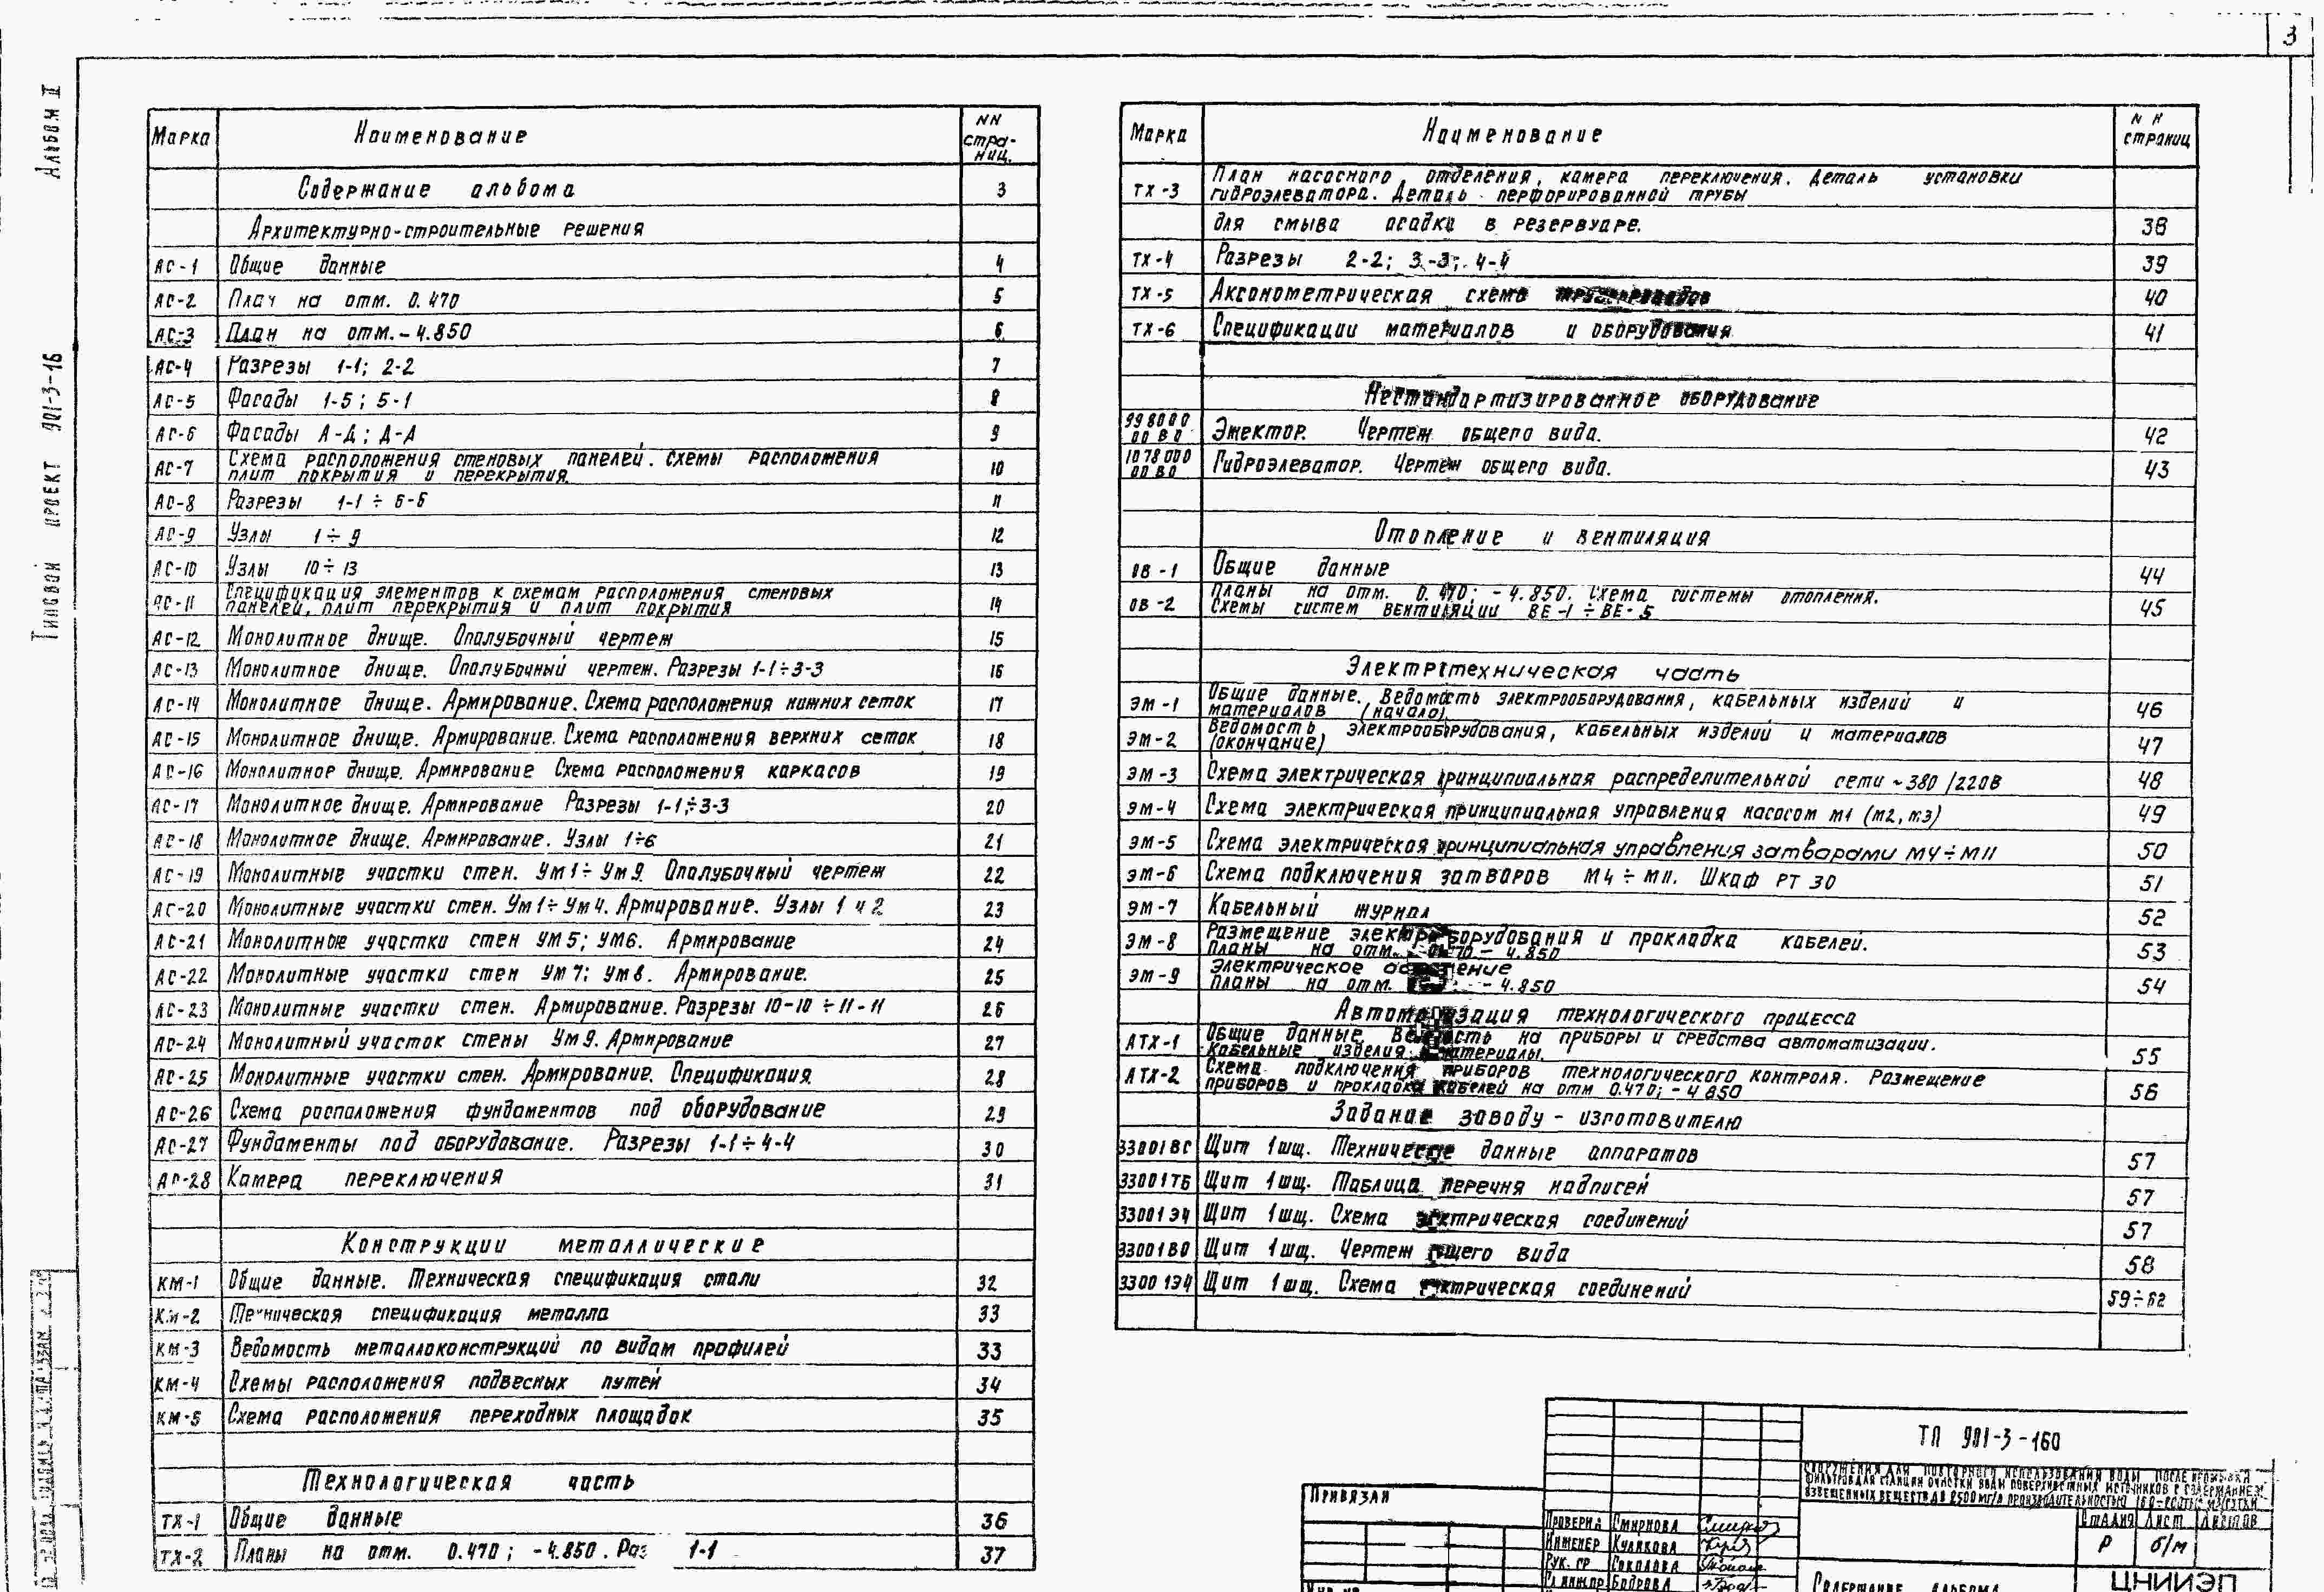 3
Альбом II
Типовой проект 901-3-16
Марка Наименование NN стра-
ниц.
Содержание альбома 3
Архитектурно-строительные решения
АС-1 Общие данные 4
АС-2 План на отм. 0.470 5
АС-3 План на отм. -4.850 6
АС-4 Разрезы 1-1; 2-2 7
АС-5 Фасады 1-5; 5-1 8
АС-6 Фасады А-Д; Д-А 9
АС-7 Схема расположения стеновых панелей. Схемы расположения
плит покрытия и перекрытия. 10
АС-8 Разрезы 1-1 ÷ 6-6 11
АС-9 Узлы 1 ÷ 9 12
АС-10 Узлы 10 ÷ 13 13
АС-11 Спецификация элементов к схемам расположения стеновых
панелей, плит перекрытия и плит покрытия 14
АС-12 Монолитное днище. Опалубочный чертеж 15
АС-13 Монолитное днище. Опалубочный чертеж. Разрезы 1-1÷3-3 16
АС-14 Монолитное днище. Армирование. Схема расположения нижних сеток 17
АС-15 Монолитное днище. Армирование. Схема расположения верхних сеток 18
АС-16 Монолитное днище. Армирование Схема расположения каркасов 19
АС-17 Монолитное днище. Армирование Разрезы 1-1÷3-3 20
АС-18 Монолитное днище. Армирование. Узлы 1÷6 21
АС-19 Монолитные участки стен. Ум1÷Ум9. Опалубочный чертеж 22
АС-20 Монолитные участки стен. Ум1÷Ум4. Армирование. Узлы 1 и 2 23
АС-21 Монолитные участки стен Ум5; Ум6. Армирование 24
АС-22 Монолитные участки стен Ум7; Ум8. Армирование. 25
АС-23 Монолитные участки стен. Армирование. Разрезы 10-10 ÷ 11-11 26
АС-24 Монолитный участок стены Ум9. Армирование 27
АС-25 Монолитные участки стен. Армирование. Спецификация 28
АС-26 Схема расположения фундаментов под оборудование 29
АС-27 Фундаменты под оборудование. Разрезы 1-1÷4-4 30
АС-28 Камера переключения 31
Конструкции металлические
КМ-1 Общие данные. Техническая спецификация стали 32
КМ-2 Техническая спецификация металла 33
КМ-3 Ведомость металлоконструкций по видам профилей 33
КМ-4 Схемы расположения подвесных путей 34
КМ-5 Схема расположения переходных площадок 35
Технологическая часть
ТХ-1 Общие данные 36
ТХ-2 Планы на отм. 0.470; -4.850. Раз 1-1 37
Марка Наименование NN
страниц
ТХ-3 План насосного отделения, камера переключения. Деталь установки
гидроэлеватора. Деталь перфорированной трубы
для смыва осадка в резервуаре. 38
ТХ-4 Разрезы 2-2; 3-3; 4-4 39
ТХ-5 Аксонометрическая схема трубопроводов 40
ТХ-6 Спецификации материалов и оборудования 41
Нестандартизированное оборудование
998000
00 ВО Эжектор. Чертеж общего вида. 42
1078000
00 ВО Гидроэлеватор. Чертеж общего вида. 43
Отопление и вентиляция
ОВ-1 Общие данные 44
ОВ-2 Планы на отм. 0.470; -4.850. Схема системы отопления.
Схемы систем вентиляции ВЕ-1 ÷ ВЕ-5 45
Электротехническая часть
ЭМ-1 Общие данные. Ведомость электрооборудования, кабельных изделий и
материалов (начало) 46
ЭМ-2 Ведомость электрооборудования, кабельных изделий и материалов
(окончание) 47
ЭМ-3 Схема электрическая принципиальная распределительной сети ~380/220В 48
ЭМ-4 Схема электрическая принципиальная управления насосом М1 (М2, М3) 49
ЭМ-5 Схема электрическая принципиальная управления затворами М4÷М11 50
ЭМ-6 Схема подключения затворов М4 ÷ М11. Шкаф РТ 30 51
ЭМ-7 Кабельный журнал 52
ЭМ-8 Размещение электрооборудования и прокладка кабелей.
Планы на отм. 0.470 - 4.850 53
ЭМ-9 Электрическое освещение
Планы на отм. - 4.850 54
Автоматизация технологического процесса
АТХ-1 Общие данные. Ведомость на приборы и средства автоматизации.
Кабельные изделия и материалы. 55
АТХ-2 Схема подключения приборов технологического контроля. Размещение
приборов и прокладка кабелей на отм 0.470; -4.850 56
Задание заводу - изготовителю
33001ВС Щит 1шщ. Технические данные аппаратов 57
33001ТБ Щит 1шщ. Таблица перечня надписей 57
33001Э4 Щит 1шщ. Схема электрическая соединений 57
33001ВО Щит 1шщ. Чертеж общего вида 58
33001Э4 Щит 1шщ. Схема электрическая соединений 59÷62
ТП 901-3-160
Сооружения для повторного использования воды после промывки
фильтров для станции очистки воды поверхностных источников с содержанием
взвешенных веществ до 2500 мг/л производительностью
Привязан
Стадия Лист Листов
Р б/м
Проверил Смирнова
Инженер Куликова
Рук. гр Соколова
Гл инж.пр Бодрова
Содержание альбома
ЦНИИЭП